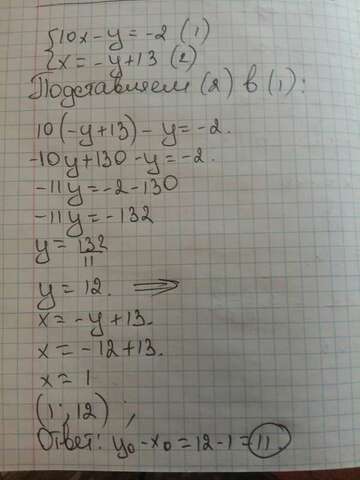 {10x-y=-2 (1)
{x=-y+13 (2)
Подставляем (2) в (1):
10(-y+13)-y=-2.
-10y+130-y=-2.
-11y=-2-130
-11y=-132
y=132/11
y=12. ⟹
x=-y+13.
x=-12+13.
x=1
(1; 12) ;
Ответ: y₀-x₀=12-1=11.